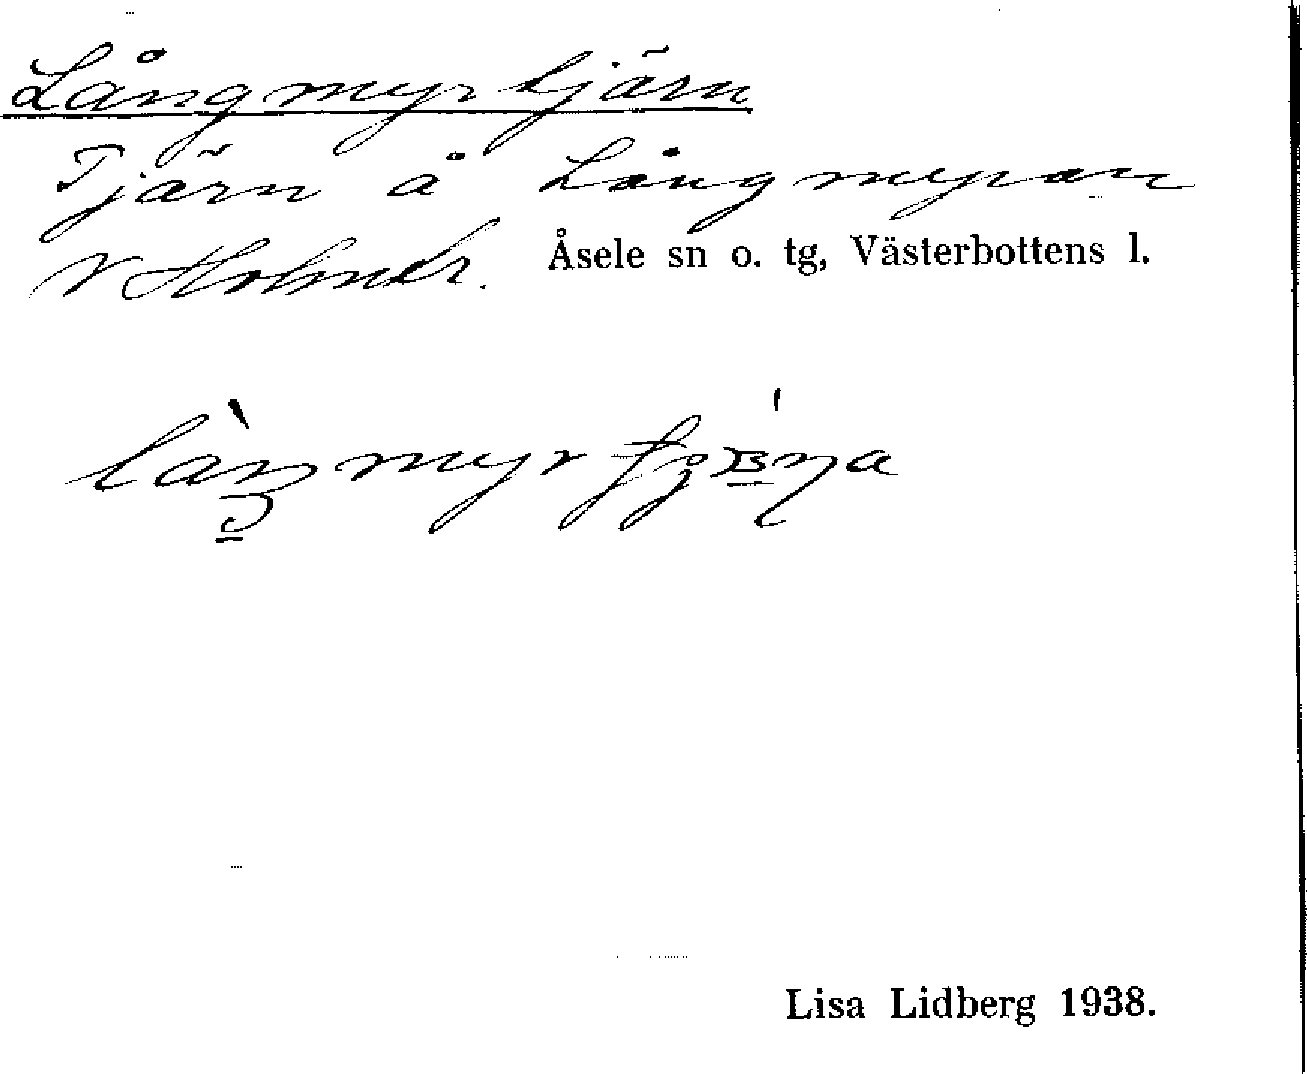 Långmyrtjärn
Tjärn å Långmyran
V Holmsk. Åsele sn o. tg, Västerbottens l.
Lisa Lidberg 1938.